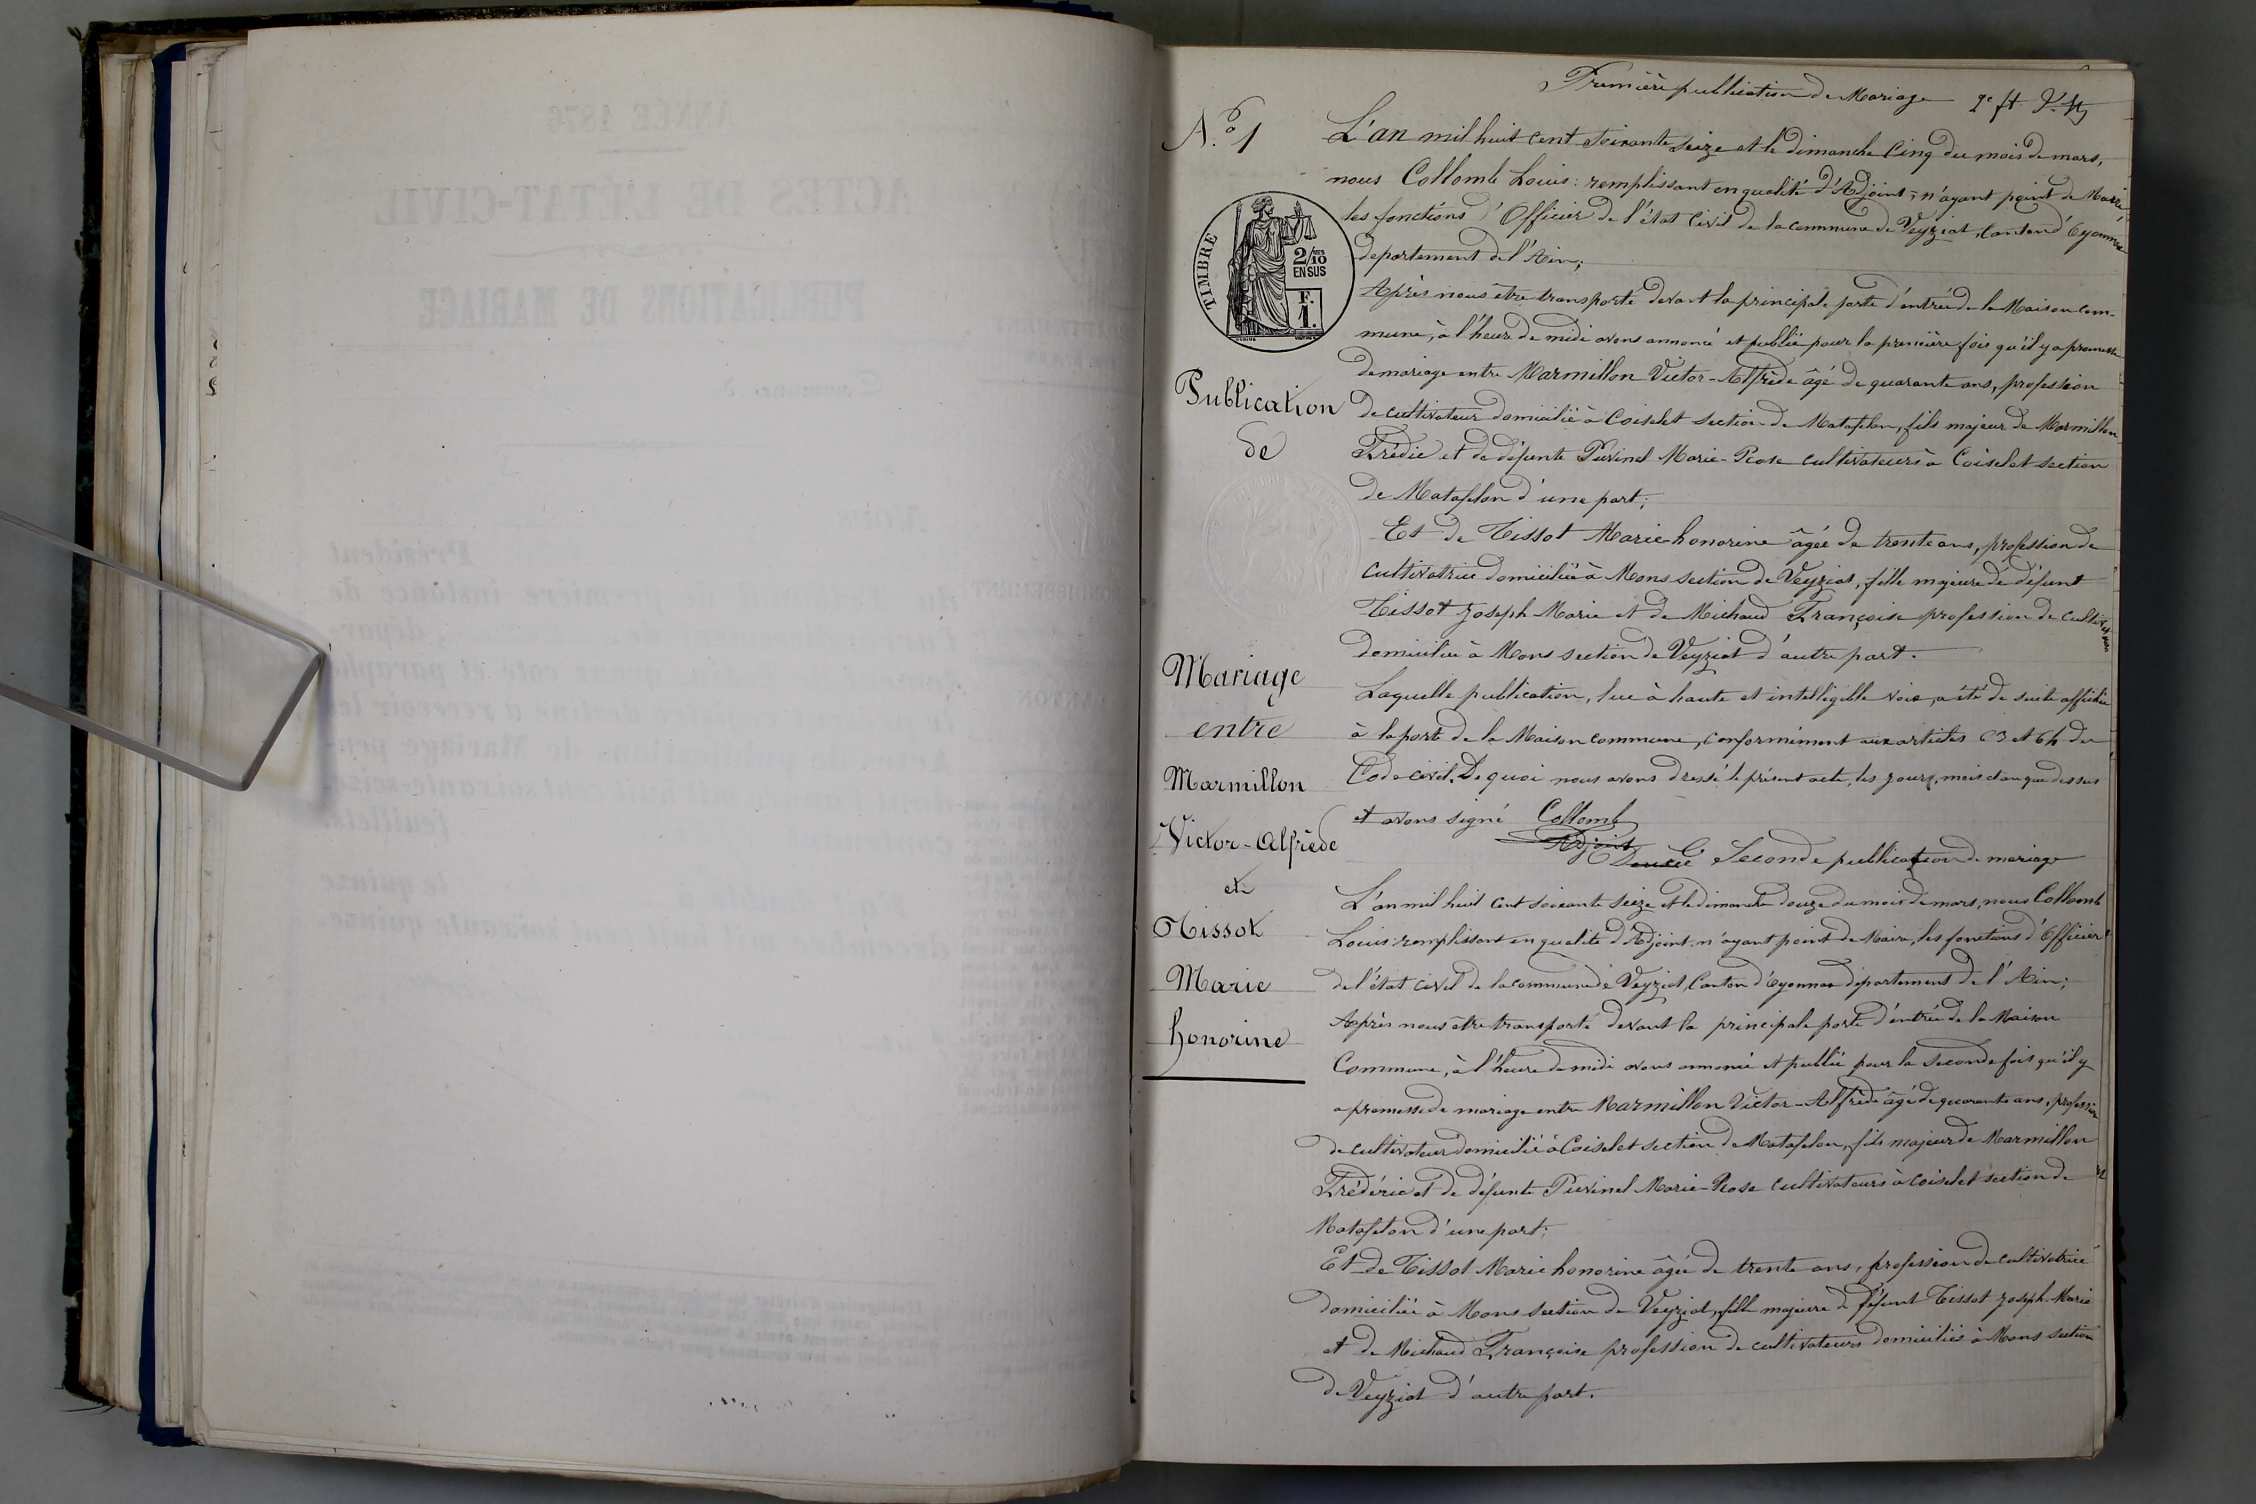 Première publication de Mariage
N.º 1
L'an mil huit cent soixante seize et le dimanche Cinq du mois de mars,
nous Collomb Louis: remplissant en qualité d'Adjoint; n'ayant point de Maire
les fonctions d'Officier de l'état Civil de la commune de Veyziat, Canton d'Oyonnax
département de l'Ain;
Après nous être transporté devant la principale porte d'entrée de la Maison com-
mune, à l'heure de midi avons annoncé et publié pour la première fois qu'il y a promesse
de mariage entre Marmillon Victor-Alfrède âgé de quarante ans, profession
de cultivateur domicilié à Coiselet section de Matafelon, fils majeur de Marmillon
Frédic et de défunte Puvinel Marie-Rose cultivateurs à Coiselet section
de Matafelon d'une part;
Et de Tissot Marie honorine âgée de trente ans, profession de
cultivatrice domiciliée à Mons section de Veyziat, fille majeure de défunt
Tissot Joseph Marie et de Michaud Françoise profession de
domiciliée à Mons section de Veyziat d'autre part.
Laquelle publication, lue à haute et intelligible voix, a été de suite affichée
à la porte de la Maison commune, conformément aux articles 63 et 64 du
Code civil. De quoi nous avons dressé le présent acte, les jours, mois et an que dessus
et avons signé Collomb
Adjoint
Seconde publication de mariage
L'an mil huit cent soixante seize et le dimanche douze du mois de mars, nous Collomb
Louis: remplissant en qualité d'Adjoint: n'ayant point de Maire, les fonctions d'Officier
de l'état civil de la commune de Veyziat, Canton d'Oyonnax département de l'Ain;
Après nous être transporté devant la principale porte d'entrée de la Maison
Commune, à l'heure de midi avons annoncé et publié pour la seconde fois qu'il y
a promesse de mariage entre Marmillon Victor-Alfrède âgé de quarante ans, profession
de cultivateur domicilié à Coiselet section de Matafelon, fils majeur de Marmillon
Frédéric et de défunte Puvinel Marie-Rose cultivateurs à Coiselet section de
Matafelon d'une part;
Et de Tissot Marie honorine âgée de trente ans, profession de cultivatrice
domiciliée à Mons section de Veyziat, fille majeure de défunt Tissot Joseph-Marie
et de Michaud Françoise profession de cultivateurs domiciliés à Mons section
de Veyziat d'autre part.
TIMBRE
2/10
EN SUS
F.
1.
Publication
de
Mariage
entre
Marmillon
Victor-Alfrède
et
Tissot
Marie
honorine